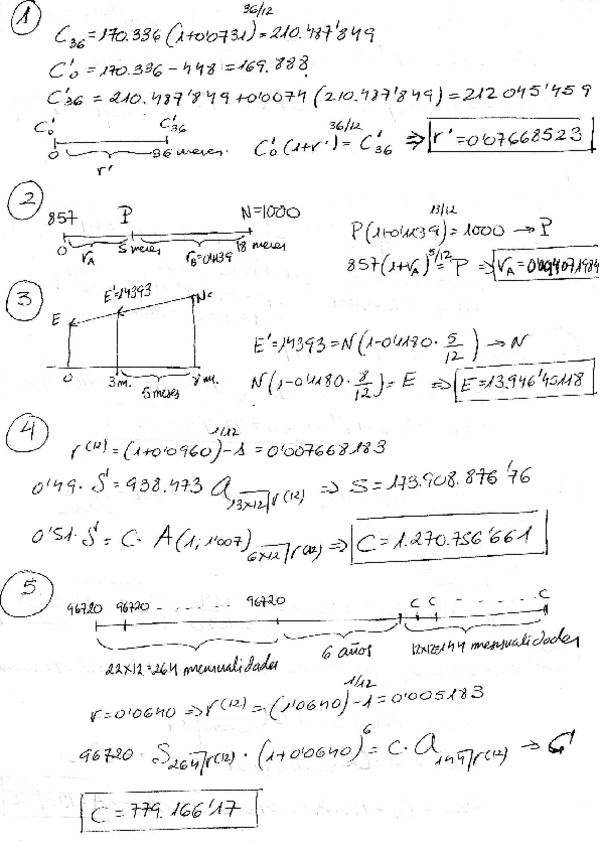 1
C₃₆ = 170.336 (1+0'0731)^36/12 = 210.487'849
C'₀ = 170.336 - 448 = 169.888
C'₃₆ = 210.487'849 + 0'0074 (210.487'849) = 212045'459
C'₀ C'₃₆
0 36 meses r' C'₀(1+r')^36/12 = C'₃₆ ⇒ r' = 0'07668523
2
857 P N=1000
0 r_A 5 meses r_B=0'1139 18 meses
P(1+0'1139)^13/12 = 1000 → P
857(1+r_A)^5/12 = P ⇒
3
E E'=14393
0 3m. 5 meses
E' = 14393 = N(1-0'1180 · 5/12) → N
N(1-0'1180 · 8/12) = E ⇒ E = 13.946'45118
4
r^(12) = (1+0'0960)^1/12 - 1 = 0'007668183
0'49 · S = 938.473 a 13×12|r^(12) ⇒ S = 173.908.876'76
0'51 · S = C · A(1; 1'007) 6×12|r^(12) ⇒ C = 1.270.756'661
5
96720 96720 ....... 96720 C C ....... C
22×12=264 mensualidades 6 años 12×12=144 mensualidades
r = 0'0640 ⇒ r^(12) = (1'0640)^1/12 - 1 = 0'005183
96720 · S 264|r^(12) · (1+0'0640)^6 = C · a 144|r^(12) → C
C = 779.166'17